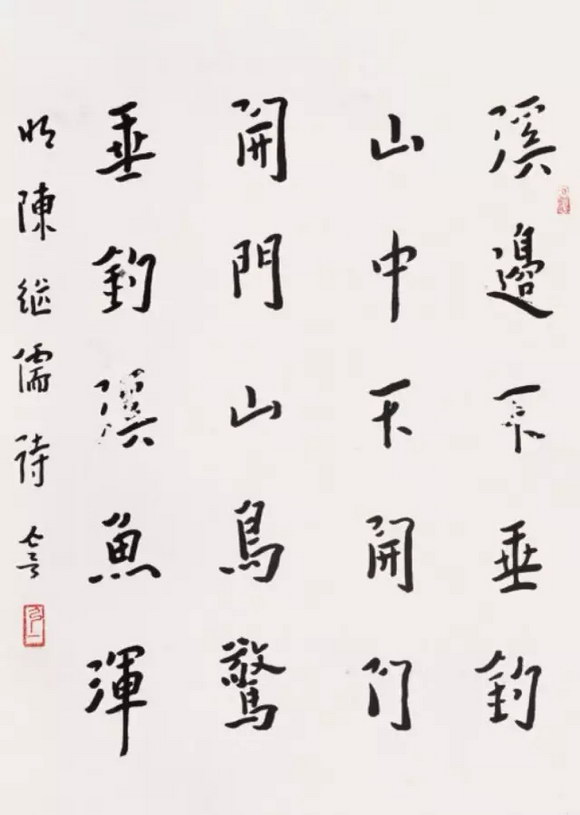 溪邊不垂釣
山中不開门
開門山鳥驚
垂釣溪魚渾
明陳繼儒詩